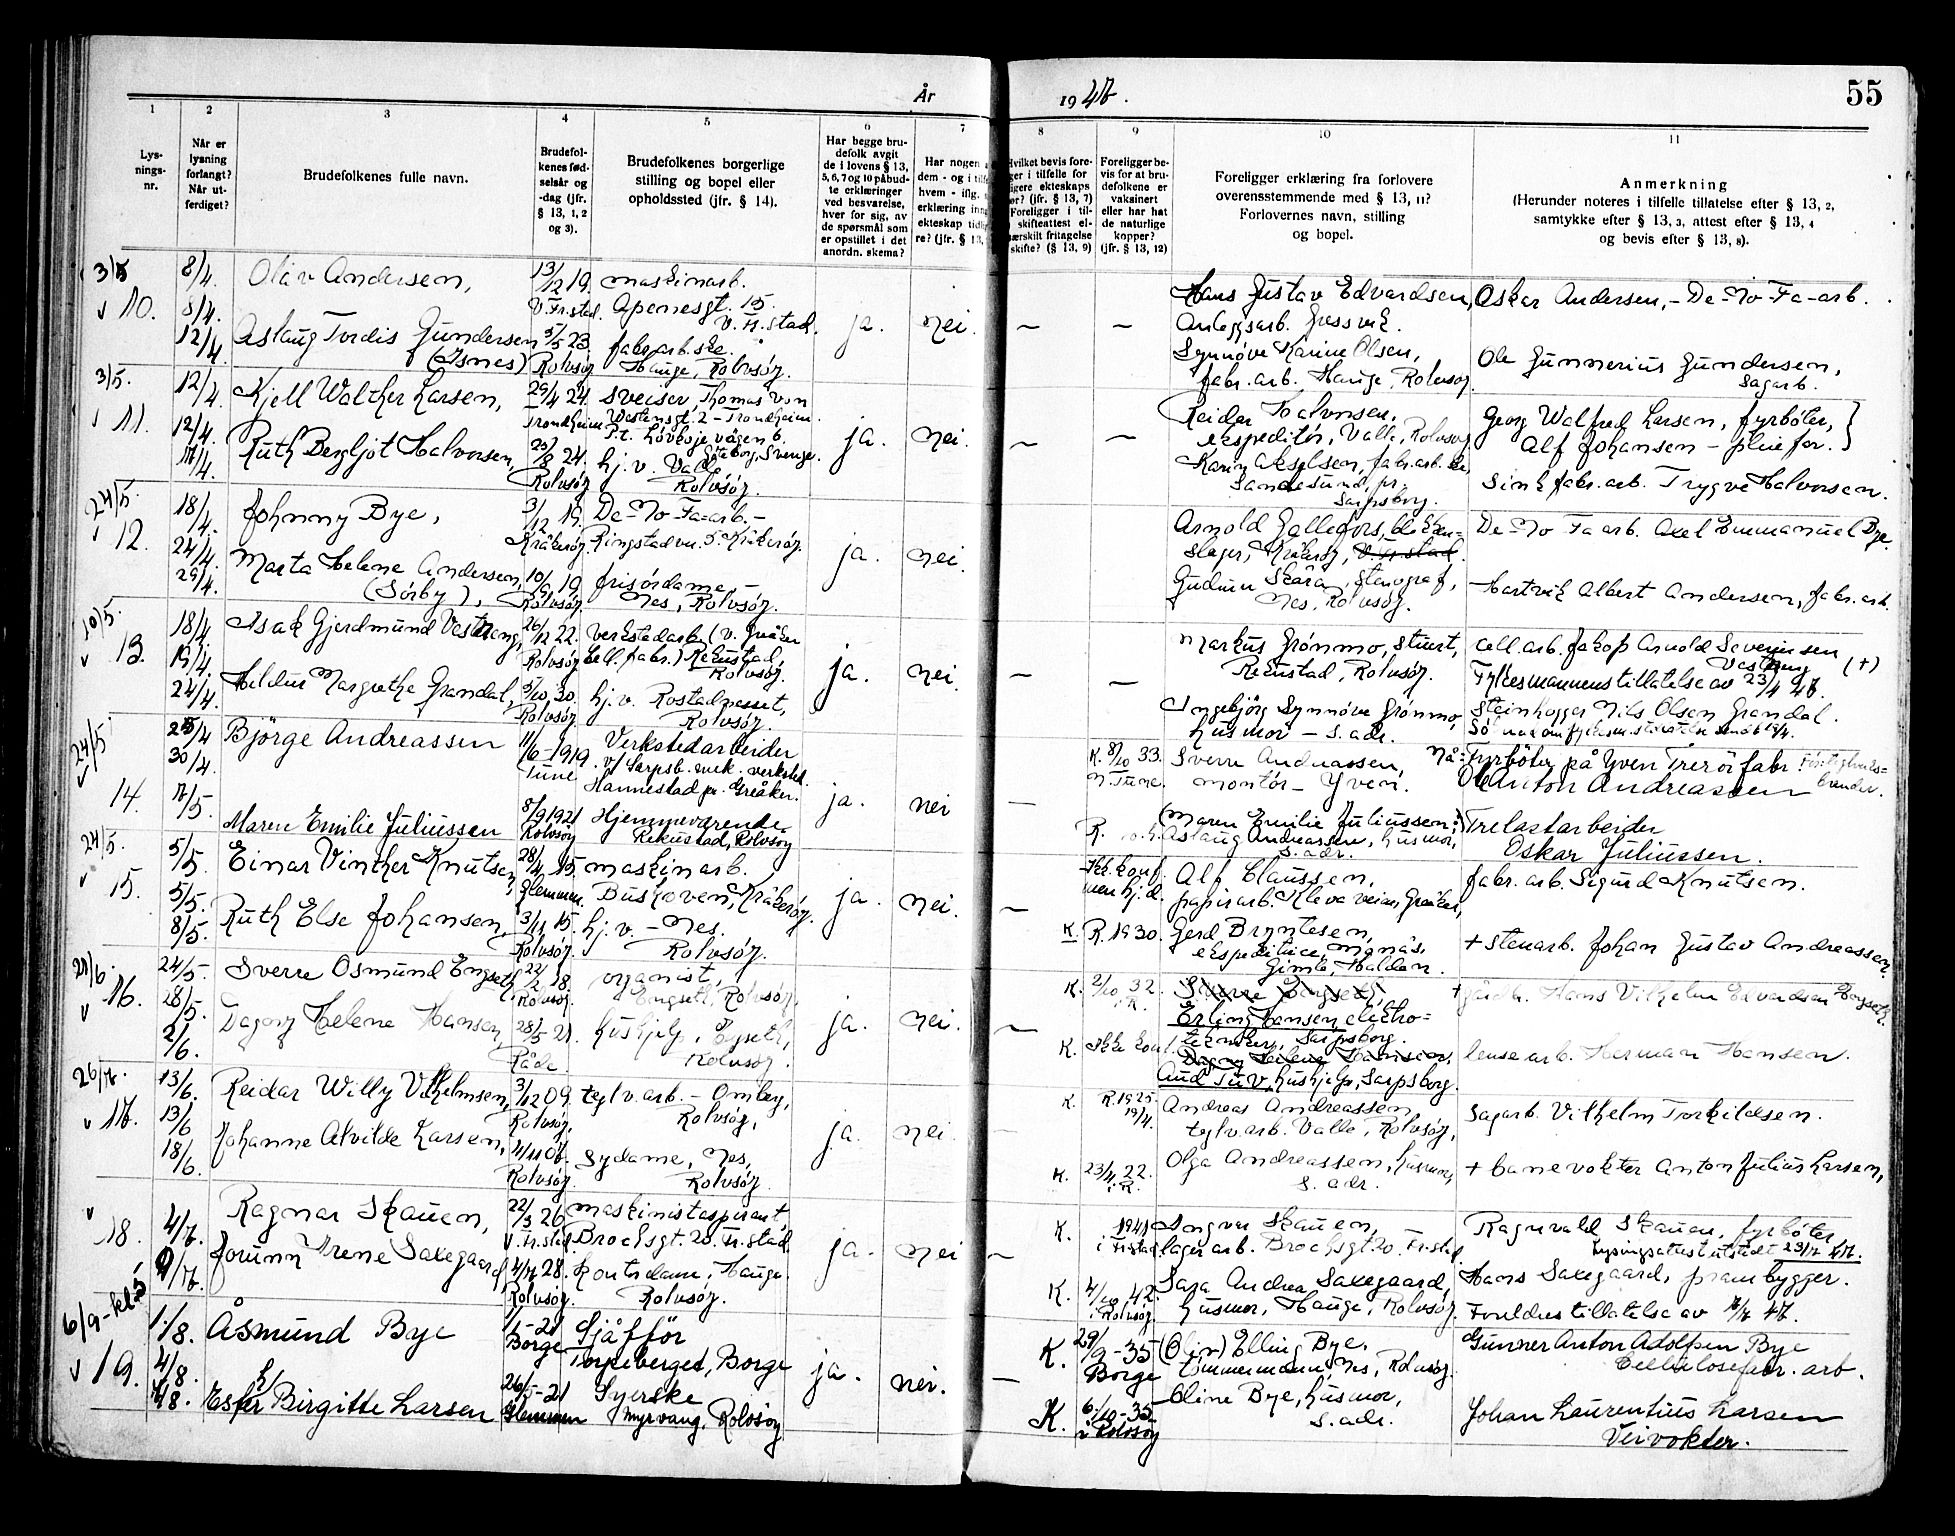 År
1947.
55
1
2
3
4
5
6
7
8
9
10
11
Lys-
nings-
nr.
Når er
lysning
forlangt?
Når ut-
ferdiget?
Brudefolkenes fulle navn.
Brudefol-
kenes fød-
selsår og
-dag (jfr.
§ 13, 1, 2
og 3).
Brudefolkenes borgerlige
stilling og bopel eller
opholdssted (jfr. § 14).
Har begge bru-
defolk avgit
de i lovens § 13,
5, 6, 7 og 10 påbud-
te erklæringer
ved besvarelse,
hver for sig, av
de spørsmål som
er opstillet i det
anordn. skema?
Har nogen a
dem - og i tilfe
hvem - iflg.
erklæring inng
ekteskap tidlig
re? (jfr. § 13,
Hvilket bevis fore-
ger i tilfelle for
igere ekteskaps
ør? (jfr. § 13, 7)
Foreligger i til-
skifteattest el-
ærskilt fritagelse
skifte? (§ 13, 9)
Foreligger be-
vis for at bru-
defolkene er
vaksinert
eller har hat
de naturlige
kopper?
(jfr. § 13, 12)
Foreligger erklæring fra forlovere
overensstemmende med § 13, 11?
Forlovernes navn, stilling
og bopel.
Anmerkning
(Herunder noteres i tilfelle tillatelse efter § 13, 2,
samtykke efter § 13, 3, attest efter § 13, 4
og bevis efter § 13, 8).
10.
8/4.
8/4.
12/4.
Olav Andersen,
13/12 19.
V. Fr.stad.
maskinarb.
Apenesgt. 15.
V. Fr.stad.
Aslaug Tordis Gundersen
(Isnes)
5/5 23.
Rolvsøy
fabr.arb.ske.
Hauge, Rolvsøy.
ja.
nei.
–
–
Hans Gustav Edvardsen,
Anleggsarb. Gressvik.
Synnøve Karine Olsen,
fabr. arb. Hauge, Rolvsøy.
Oskar Andersen, - De-No-Fa-arb.
Ole Gunnerius Gundersen,
Sagarb.
3/5.
11.
12/4.
12/4.
17/4.
Kjell Walther Larsen,
29/4 24.
Trondheim
sveiser, Thomas von
Westensgt. 2 - Trondheim.
Ruth Bergljot Halvorsen,
24.
Rolvsøy
hj. v. Valle,
Rolvsøy.
ja.
nei.
–
–
Reidar Halvorsen,
ekspeditør, Valle, Rolvsøy
Karin Akselsen, fabr.arb.
Sandesund, pr.
Sarpsborg.
Georg Walfred Larsen, fyrbøter,
Alf Johansen - pleiefor.
Sink fabr. arb. Trygve Halvorsen.
24/5
12.
18/4.
24/4.
29/4.
Johnny Bye,
3/12 19.
Kråkerøy.
De-No-Fa-arb. -
Marta Helene Andersen,
(Sörby),
10/9 19.
Rolvsøy.
frisördame -
Nes, Rolvsøy.
ja.
nei.
Arnold Gellefors, blikken-
slager, Kråkerøy, V. Fr.stad
Gudrun Skåra, stenograf,
Nes, Rolvsøy.
De-No Fa arb. Axel Emmanuel Bye.
Hartvik Albert Andersen, fabr. arb.
10/5.
13.
18/4.
19/4.
24/4.
Isak Gjerdmund Vesteng,
26/12 22.
Rolvsøy
verkstedarb. (v. Greåker
Cell. fabr.) Rekustad,
Rolvsøy.
Haldis Margrethe Grandal,
5/10 30.
Rolvsøy
hj. v. Rostadneset,
Rolvsøy
ja.
nei.
–
–
Markus Grønmo, stuert,
Rekustad, Rolvsøy.
Ingebjörg Synnöve Grönmo,
husmor - s. adr.
cell.arb. Jakop Arnold Severinsen
Vesteng (+)
Fylkesmannens tillatelse av 23/4 47.
Steinhogger Nils Olsen Grandal.
24/5
14.
25/4
30/4.
7/5.
Björge Andreassen
11/6-1919.
Tune
Verkstedarbeider
v/ Sarpsb. mek. verksted.
Hannestad pr. Greåker.
Maren Emilie Juliussen
8/9 1921
Rolvsøy
Hjemmeværende
Rekustad, Rolvsøy
ja.
nei
–
K. 8/10 33.
N. Tune.
Sverre Andreassen,
montör - Yven.
(Maren Emilie Juliussen:)
Aslaug Andreassen, husmor,
s. adr.
Nå: Fyrböter på Yven Treröifabr.
Ole Anton Andreassen
Trelastarbeider
Oskar Juliussen.
24/5.
15.
5/5.
5/5.
8/5.
Einar Vinther Knutsen,
28/4 15.
Glemmen.
maskinarb.
Buskoven, Kråkerøy.
Ruth Else Johansen,
3/11 15.
Rolvsøy.
hj. v. - Nes.
Rolvsøy.
ja.
nei.
–
Ikke konf.
men hj. d.
K. R. 1930.
Alf Claussen,
papirarb. Kleva veien, Greåker,
Gerd Bryntesen,
ekspeditrice,
Gimle, Halden.
fabr. arb. Sigurd Knutsen.
+ stenarb. Johan Gustav Andreassen.
21/6.
16.
24/5.
28/5.
2/6.
Sverre Osmund Engseth,
22/2 18.
Rolvsøy.
organist,
Engseth, Rolvsøy,
Dagny Helene Hansen,
28/5 21.
Råde
hushjelp, Engseth,
Rolvsøy.
ja.
nei.
–
K. 2/10 32.
i. R.
K. Ikke konf.
Sverre Engseth,
Erling Hansen, elektro-
tekniker, Sarpsborg.
Dagny Helene Hansen,
Aud Tuv, hushjelp, Sarpsborg.
+ gårdbr. Hans Vilhelm Edvardsen Engseth.
lense arb. Herman Hansen.
26/7.
17.
13/6.
13/6
18/6.
Reidar Willy Vilhelmsen,
3/12 09.
Rolvsøy,
teglv.arb. - Omberg,
Rolvsøy,
Johanne Alvilde Larsen,
4/11 07.
Rolvsøy
Sydame, Nes,
Rolvsøy
ja.
nei.
–
K. R. 1925.
19/4.
K. 23/4. 22.
i. R.
Andreas Andreassen,
teglv.arb. Valle, Rolvsøy,
Olga Andreassen, husmor,
s. adr.
Sagarb. Vilhelm Torkildsen.
+ banevokter Anton Julius Larsen,
18.
4/7.
9/7.
Ragnar Skauen,
22/3 26
V. Fr.stad.
maskinistaspirant,
Brochsgt. 20. Fr.stad.
Jorunn Irene Saxegaard,
4/7 28.
Rolvsøy.
kontordame, Hauge.
Rolvsøy.
ja.
nei
–
K. 1941
i Fr.stad
K. 4/10 42.
i Rolvsøy.
Ingvar Skauen, -
lager arb. Brochsgt. 20. Fr.stad
Sara Andrea Saxegaard,
husmor, Hauge, Rolvsøy
Ragnvald Skauen, fyrböter
Lysingsattest utstedt 23/7 47.
Hans Saxegaard, prambygger.
Foreldres tillatelse av 7/7 47.
6/9-kl. 5
19.
1./8.
4/8.
7/8.
Åsmund Bye
1/1-21
Borge
Sjåför
Torpeberget, Borge
Ester Birgitte Larsen
h/
26/5-21
Glemmen
Syerske
Myrvang, Rolvsøy
ja.
nei.
–
K. 29/9-35
Borge
K. 6./10-35
i Rolvsøy
(Olin) Elling Bye,
tömmermann, Nes, Rolvsøy.
Oline Bye, husmor,
s. adr.
Gunner Anton Adolfsen Bye
Cellulosefabr. arb.
Johan Laurentius Larsen
Veivokter.